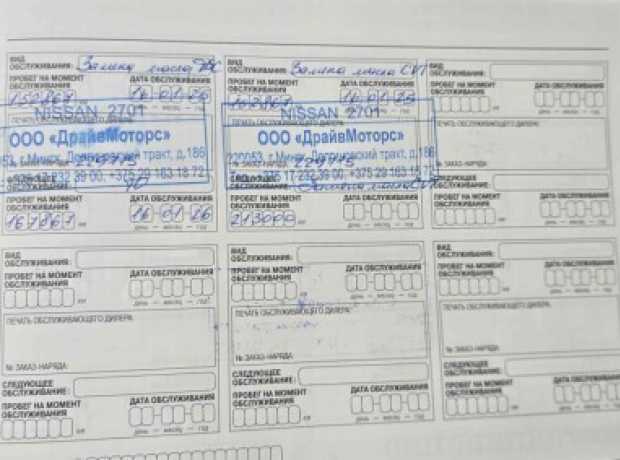 ВИД ОБСЛУЖИВАНИЯ: Замена масла ДВС
ПРОБЕГ НА МОМЕНТ ОБСЛУЖИВАНИЯ ДАТА ОБСЛУЖИВАНИЯ
16 01 25
NISSAN 2701
ООО «ДрайвМоторс»
г.Минск, тракт, д.186
232 39 00, +375 29 163 18 72
ОБСЛУЖИВАНИЕ: ТО
ПРОБЕГ НА МОМЕНТ ОБСЛУЖИВАНИЯ ДАТА ОБСЛУЖИВАНИЯ
167867 16 01 26
день — месяц — год
ВИД ОБСЛУЖИВАНИЯ: Замена масла CVT
ПРОБЕГ НА МОМЕНТ ОБСЛУЖИВАНИЯ ДАТА ОБСЛУЖИВАНИЯ
16 01 25
NISSAN 2701
ООО «ДрайвМоторс»
220053, г.Минск, тракт, д.186
17 232 39 00, +375 29 163 18 72
Замена масла CVT
213000
день — месяц — год
ВИД ОБСЛУЖИВАНИЯ:
ПРОБЕГ НА МОМЕНТ ОБСЛУЖИВАНИЯ ДАТА ОБСЛУЖИВАНИЯ
км день — месяц — год
ПЕЧАТЬ ОБСЛУЖИВАЮЩЕГО ДИЛЕРА:
№ ЗАКАЗ-НАРЯДА:
СЛЕДУЮЩЕЕ ОБСЛУЖИВАНИЕ:
ПРОБЕГ НА МОМЕНТ ОБСЛУЖИВАНИЯ ДАТА ОБСЛУЖИВАНИЯ
км день — месяц — год
ВИД ОБСЛУЖИВАНИЯ:
ПРОБЕГ НА МОМЕНТ ОБСЛУЖИВАНИЯ ДАТА ОБСЛУЖИВАНИЯ
км день — месяц — год
ПЕЧАТЬ ОБСЛУЖИВАЮЩЕГО ДИЛЕРА:
№ ЗАКАЗ-НАРЯДА:
СЛЕДУЮЩЕЕ ОБСЛУЖИВАНИЕ:
ПРОБЕГ НА МОМЕНТ ОБСЛУЖИВАНИЯ ДАТА ОБСЛУЖИВАНИЯ
км день — месяц — год
ВИД ОБСЛУЖИВАНИЯ:
ПРОБЕГ НА МОМЕНТ ОБСЛУЖИВАНИЯ ДАТА ОБСЛУЖИВАНИЯ
км день — месяц — год
ПЕЧАТЬ ОБСЛУЖИВАЮЩЕГО ДИЛЕРА:
№ ЗАКАЗ-НАРЯДА:
СЛЕДУЮЩЕЕ ОБСЛУЖИВАНИЕ:
ПРОБЕГ НА МОМЕНТ ОБСЛУЖИВАНИЯ ДАТА ОБСЛУЖИВАНИЯ
км день — месяц — год
ВИД ОБСЛУЖИВАНИЯ:
ПРОБЕГ НА МОМЕНТ ОБСЛУЖИВАНИЯ ДАТА ОБСЛУЖИВАНИЯ
км день — месяц — год
ПЕЧАТЬ ОБСЛУЖИВАЮЩЕГО ДИЛЕРА:
№ ЗАКАЗ-НАРЯДА:
СЛЕДУЮЩЕЕ ОБСЛУЖИВАНИЕ:
ПРОБЕГ НА МОМЕНТ ОБСЛУЖИВАНИЯ ДАТА ОБСЛУЖИВАНИЯ
км день — месяц — год